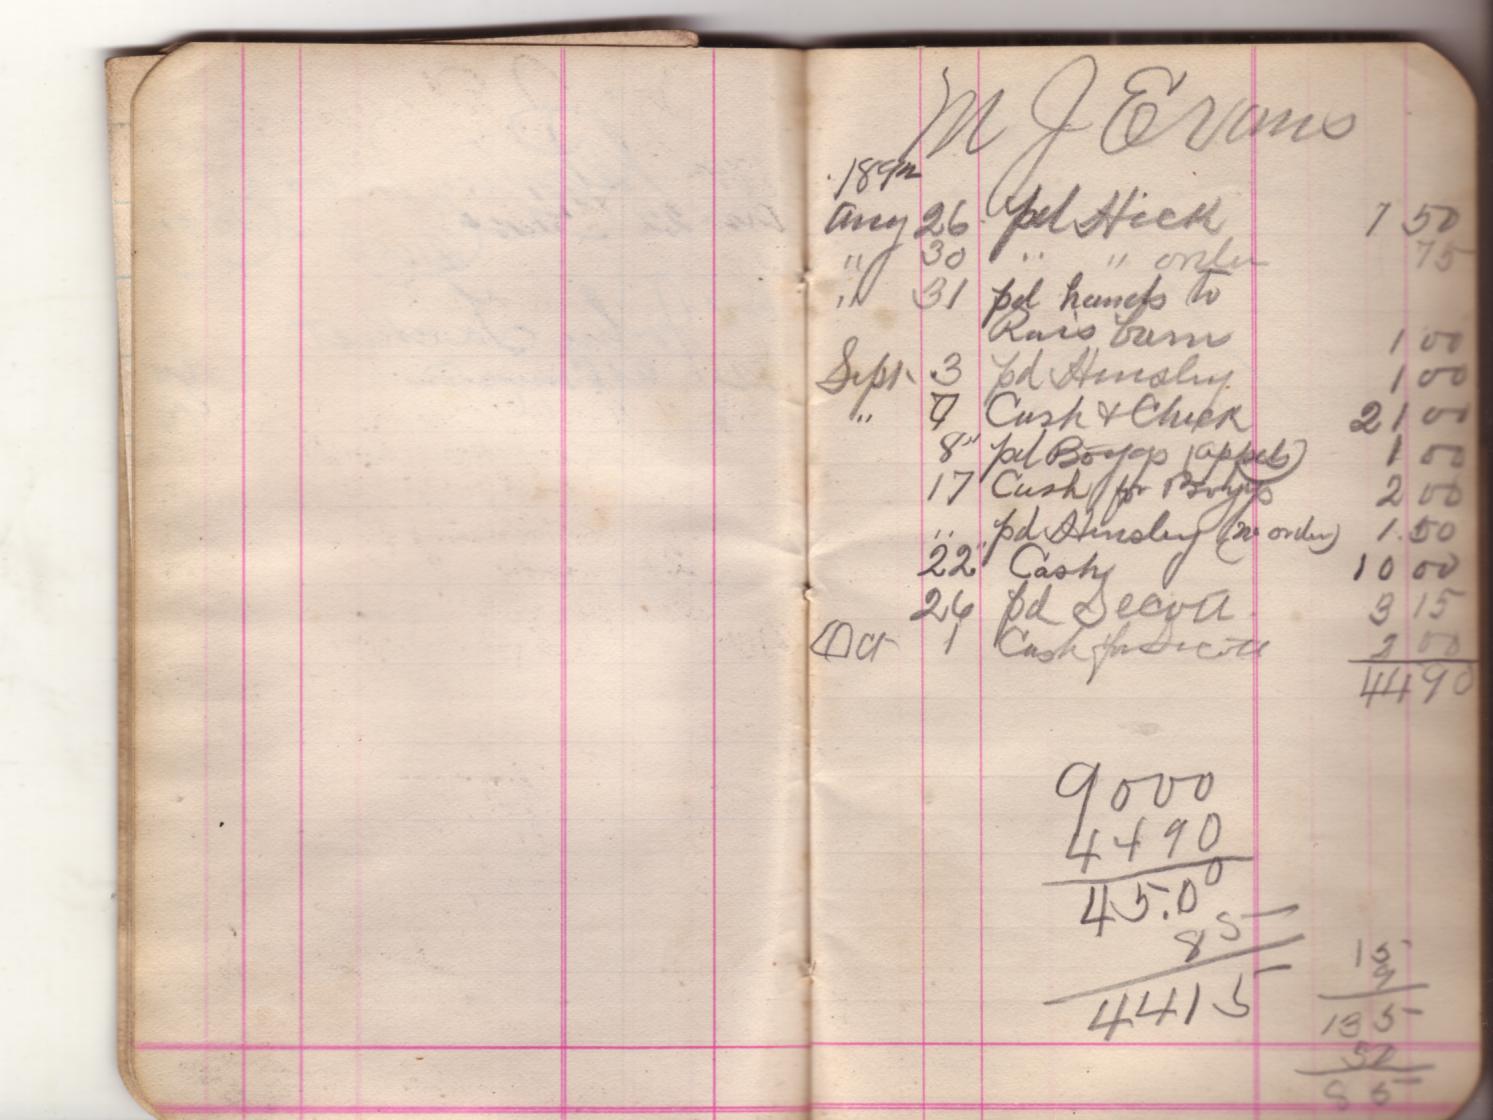 M J Evans
189
Aug 26 pd Hick 1 50
" 30 " " order 75
" 31 pd hands to
Rais barn 1 00
Sept. 3 pd Hensley 1 00
" 7 Cash & Check 21 00
8" pd Boggs (appels) 1 00
17 Cash for Boggs 2 00
" pd Hensley (no order) 1.50
22" Cash 10 00
26 pd Scott 3 15
Oct 1 Cash for Scott 2 00
4490
9000
4490
45.00
85
4415
15
9
135
50
85